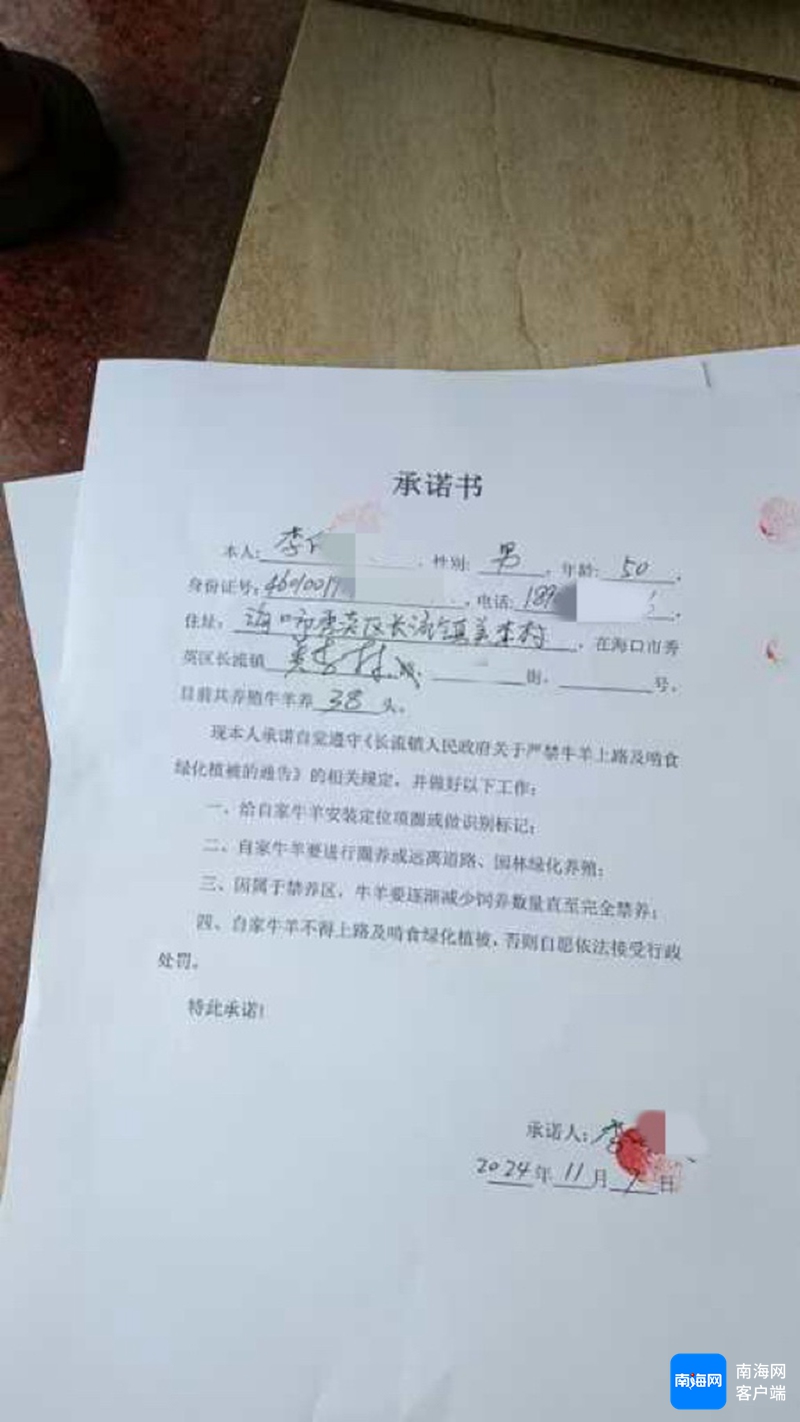 承诺书
本人:李 ,性别: 男 ,年龄: 50 ,
身份证号: 4601001 ,电话: 189
住址: 海口市秀英区长流镇美李村 ,在海口市秀
英区长流镇 美李村 街, 号,
目前共养殖牛羊养 38 头。
现本人承诺自觉遵守《长流镇人民政府关于严禁牛羊上路及啃食
绿化植被的通告》的相关规定,并做好以下工作:
一、给自家牛羊安装定位项圈或做识别标记;
二、自家牛羊要进行圈养或远离道路、园林绿化养殖;
三、因属于禁养区,牛羊要逐渐减少饲养数量直至完全禁养;
四、自家牛羊不得上路及啃食绿化植被,否则自愿依法接受行政
处罚。
特此承诺!
承诺人: 李
2024 年 11 月 7 日
南海网
南海网
客户端